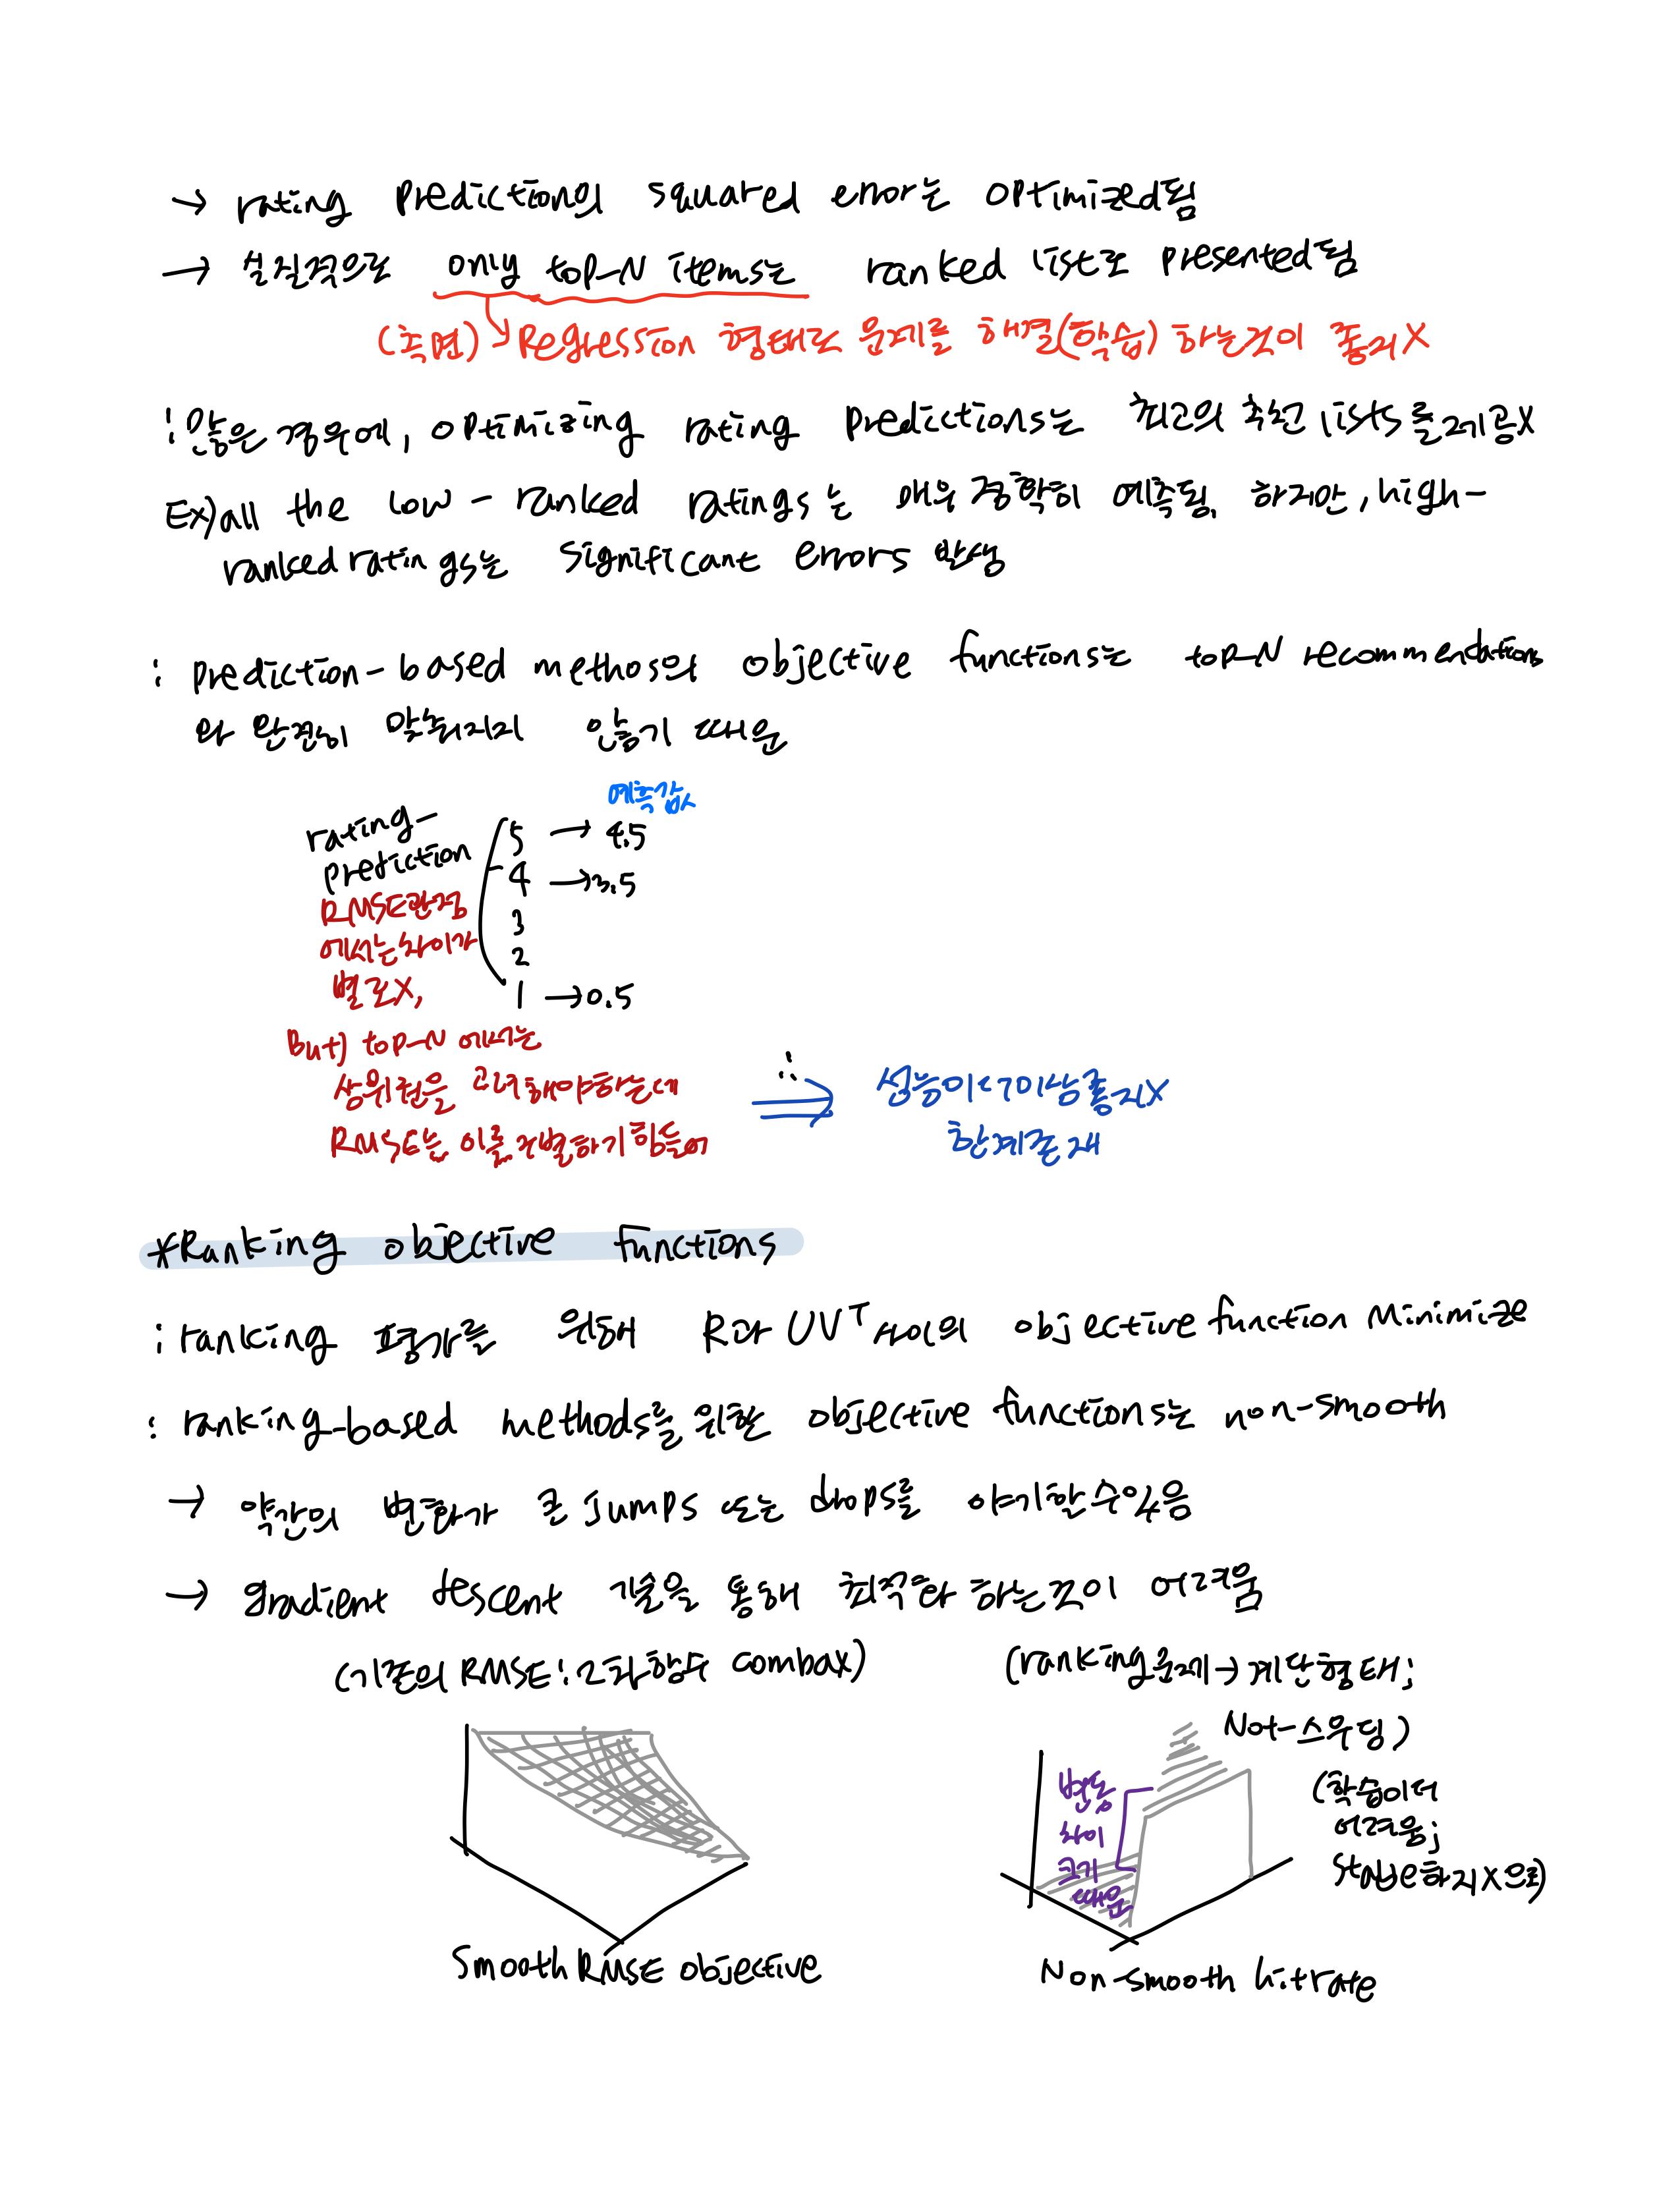 → rating prediction의 squared error는 optimized됨
→ 실질적으로 only top-N items는 ranked list로 presented됨
(측면) Regression 형태로 문제를 해결(학습) 하는것이 좋지X
: 많은 경우에, optimizing rating predictions는 최고의 추천 lists를 제공X
Ex) all the low-ranked ratings는 매우 정확히 예측됨, 하지만, high-
ranked ratings는 significant errors 발생
: prediction-based methos의 objective functions는 top-N recommendations
와 완전히 맞춰지지 않놓기 때문
예측값
rating-
prediction
RMSE관점
에서는 차이가
별로X,
5 → 4.5
4 → 3.5
3
2
1 → 0.5
But) top-N 에서는
상위권을 고려해야하는데
RMSE는 이를 구별하기 힘들어
∴ ⇒ 성능이 더이상 좋지X
한계존재
*Ranking objective functions
: ranking 평가를 위해 R과 UVᵀ 사이의 objective function minimize
: ranking-based methods를 위한 objective functions는 non-smooth
→ 약간의 변화가 큰 jumps 또는 drops를 야기할 수 있음
→ gradient descent 기술을 통해 최적화 하는것이 어려움
(기존의 RMSE: 2차함수 combax)
Smooth RMSE objective
(ranking문제→계단형태;
Not-스무딩)
변동
차이
크기
때문
(학습이 더
어려움;
stable하지X으로)
Non-smooth hitrate